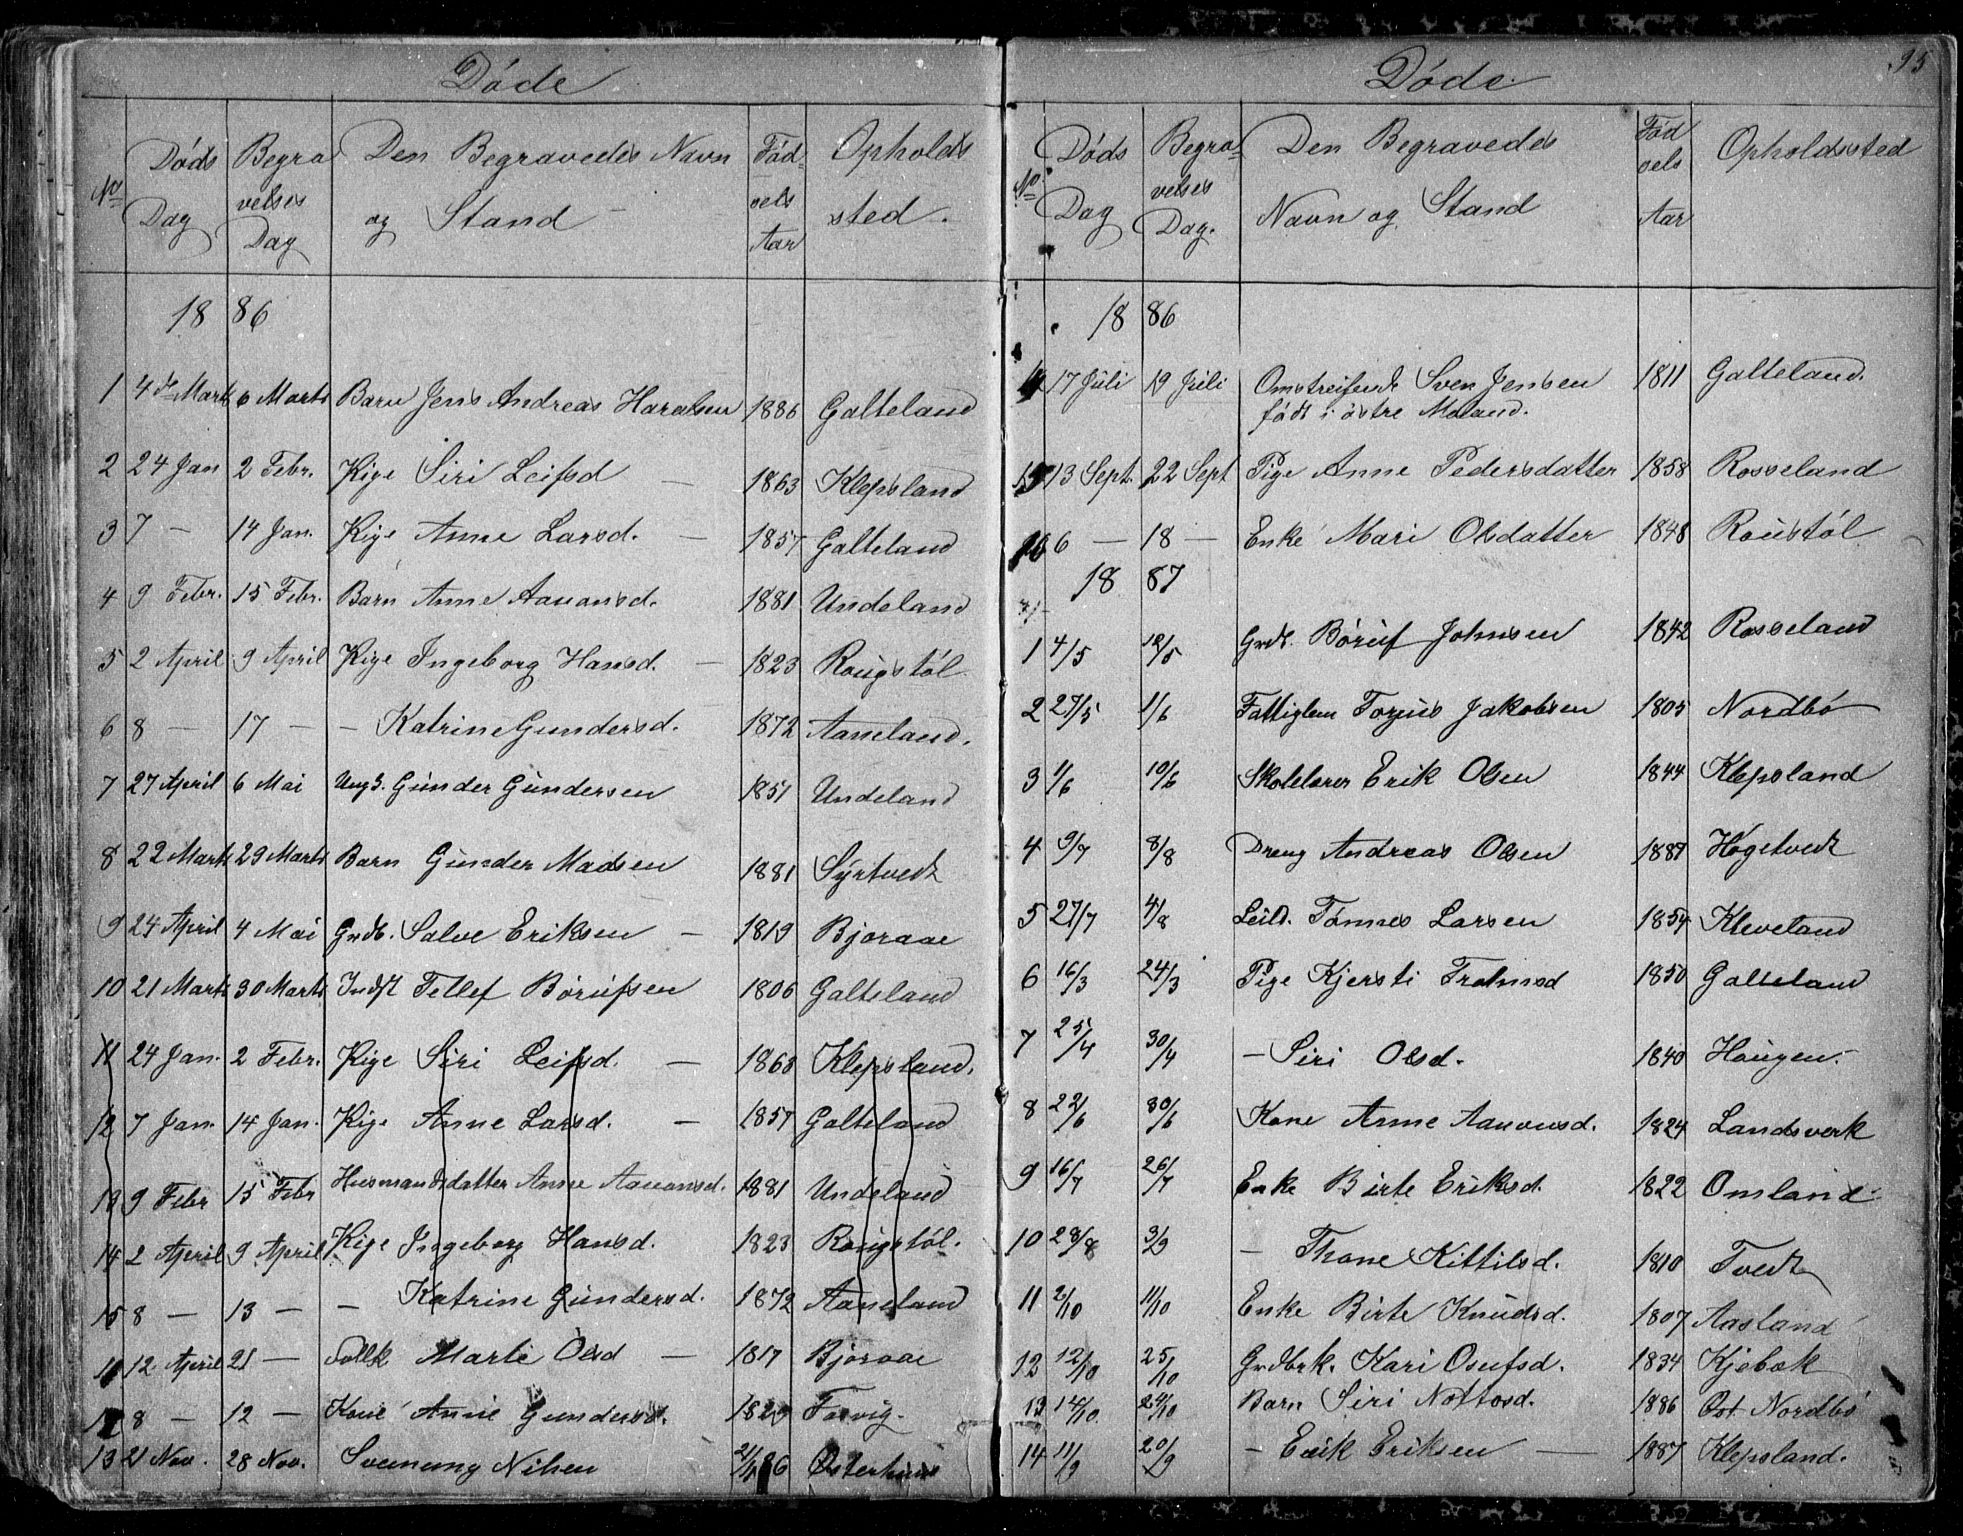 Döde
No Döds Dag Begravelses Dag Den Begravedes Navn og Stand Födsels Aar Opholdssted.
1886
1 4de Marts 6 Marts Barn Jens Andreas Haralsen 1886 Galteland
2 24 Jan 2 Febr. Pige Siri Leifsd — 1863 Klepsland
3 7 — 14 Jan. Pige Anne Larsd. — 1857 Galteland
4 9 Febr. 15 Febr. Barn Anne Aauansd. 1881 Undeland
5 2 April 9 April Pige Ingeborg Hansd. — 1823 Rougstöl
6 8 — 17 — — Katrine Gundersd. 1872 Aaneland.
7 27 April 6 Mai Ung3. Gunder Gundersen 1851 Undeland
8 22 Marts 29 Marts Barn Gunder Madsen 1881 Syrtvedt
9 24 April 4 Mai Grdb. Salve Eriksen — 1819 Bjoraae
10 21 Marts 30 Marts Indst Tellef Börufsen 1806 Galteland
11 24 Jan. 2 Febr. Pige Siri Leifsd. — 1863 Klepsland.
12 7 Jan. 14 Jan. Pige Anne Larsd. — 1857 Galteland
13 9 Febr 15 Febr Husmandsdatter Anne Aauansd. 1881 Undeland
14 2 April 9 April Pige Ingeborg Hansd. 1823 Rougstöl.
15 8 — 13 — — Katrine Gundersd. 1872 Aaneland
11 12 April 21 — Folk Marte Olsd — 1817 Bjoraae
12 8 — 12 — Kone Anne Gundersd. 1829 Fosvig.
13 21 Nov. 28 Nov. Svenung Nilsen 2/11 86 Österhuus
95
Döde
No. Döds Dag Begravelses Dag. Den Begravedes Navn og Stand Födsels Aar Opholdssted
1886
14 17 Juli 19 Juli Omstreifende Sven Jensen 1811 Galteland.
född i östre Moland.
15 13 Sept. 22 Sept Pige Anne Pedersdatter 1858 Rosseland
16 6 — 18 — Enke Mari Olsdatter 1848 Roustöl
1887
1 4/5 12/5 Grdb. Böruf Johnsen 1842 Rosseland
2 27/5 1/6 Fattiglem Torjus Jakobsen 1805 Nordbö
3 1/6 10/6 Skolelærer Erik Olsen 1844 Klepsland
4 9/7 8/8 Dreng Andreas Olsen 1887 Högetvedt
5 27/7 4/8 Leild. Tönnes Larsen 1854 Kleveland
6 16/3 24/3 Pige Kjersti Trolmsd 1850 Galteland
7 25/4 30/4 — Siri Olsd. 1840 Haugen.
8 22/6 30/6 Kone Anne Aanonsd. 1824 Landsverk
9 16/7 26/7 Enke Birte Eriksd. 1822 Omland
10 28/8 3/9 — Thone Kittilsd. 1810 Tvedt
11 2/10 11/10 Enke Birte Knudsd. 1807 Aasland
12 12/10 25/10 Grdbrk. Kari Osufsd. 1834 Kjebæk
13 14/10 24/10 Barn Siri Nottosd. 1886 Ost Nordbö
14 11/9 20/9 — Erik Eriksen — 1887 Klepsland.